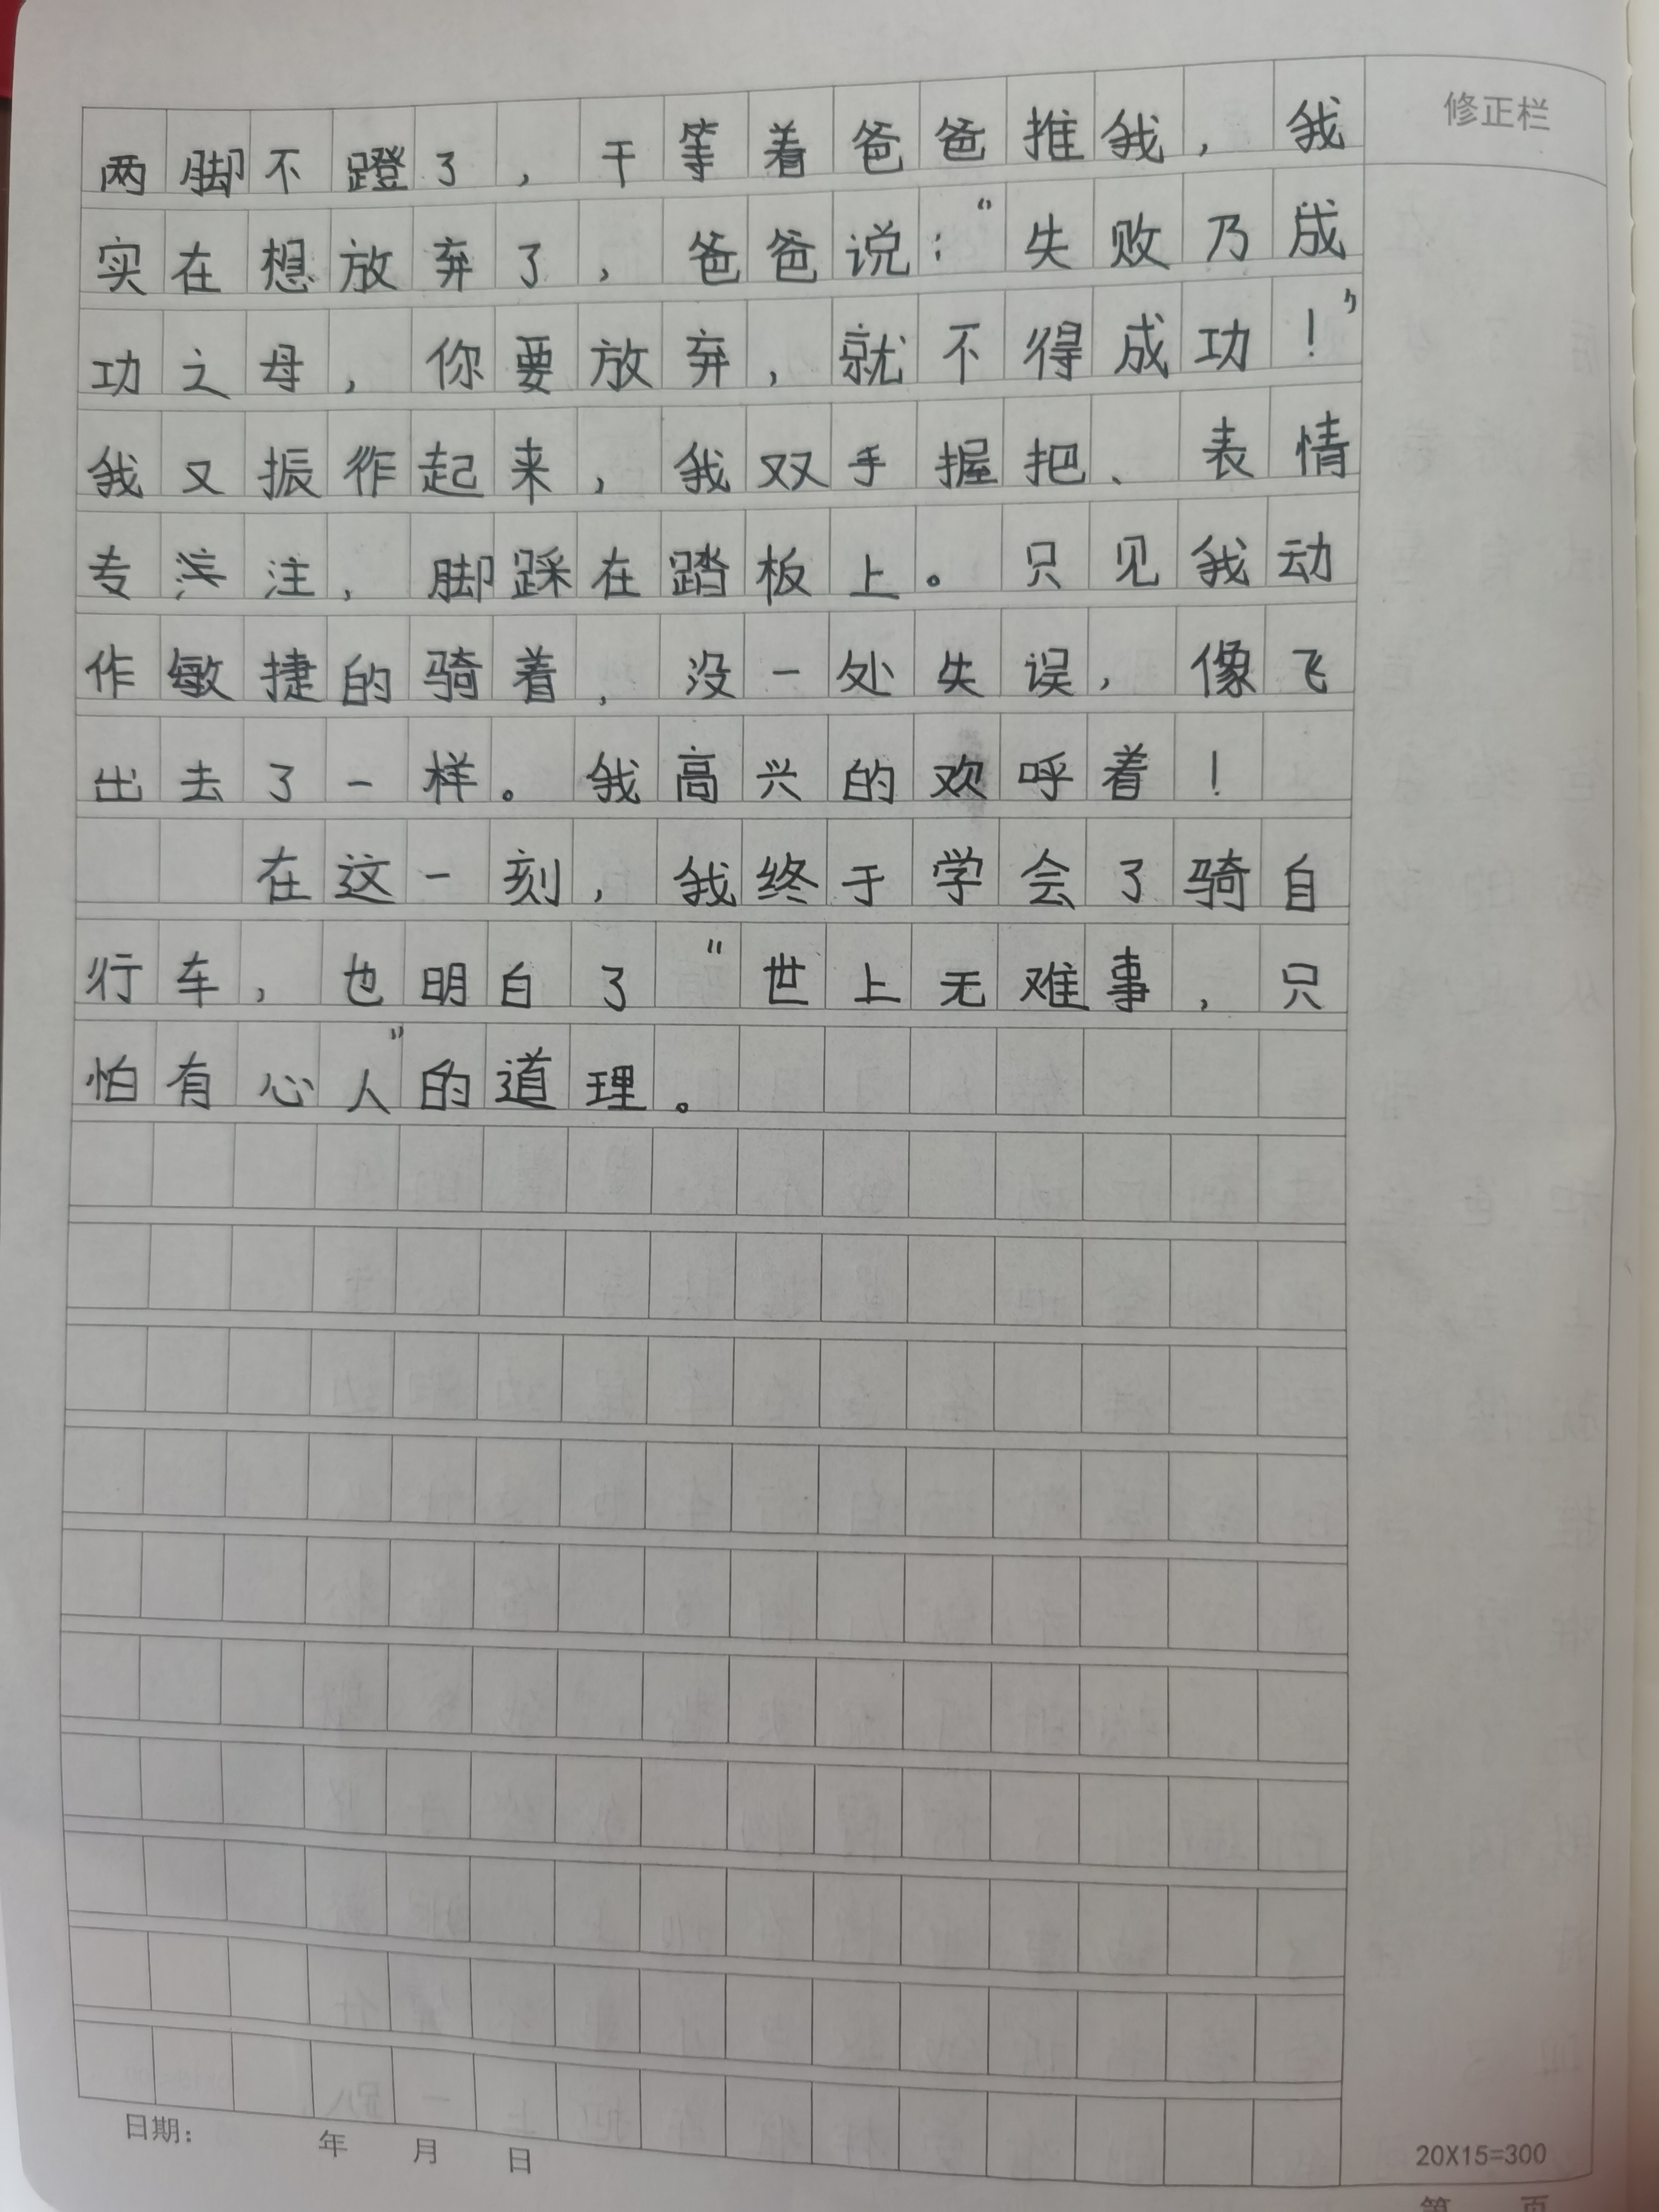 修正栏
两脚不蹬了，干等着爸爸推我，我
实在想放弃了，爸爸说：“失败乃成
功之母，你要放弃，就不得成功！”
我又振作起来，我双手握把、表情
专注，脚踩在踏板上。只见我动
作敏捷的骑着，没一处失误，像飞
出去了一样。我高兴的欢呼着！
在这一刻，我终于学会了骑自
行车，也明白了“世上无难事，只
怕有心人”的道理。
日期： 年 月 日
20X15=300
第 页